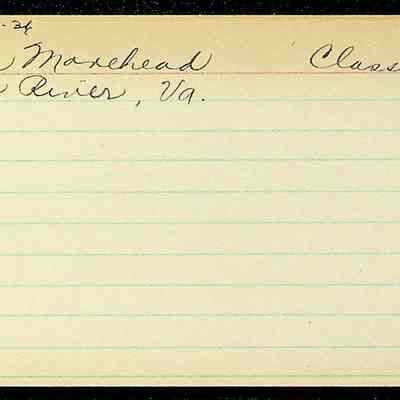 -24
Morehead Class
River, Va.